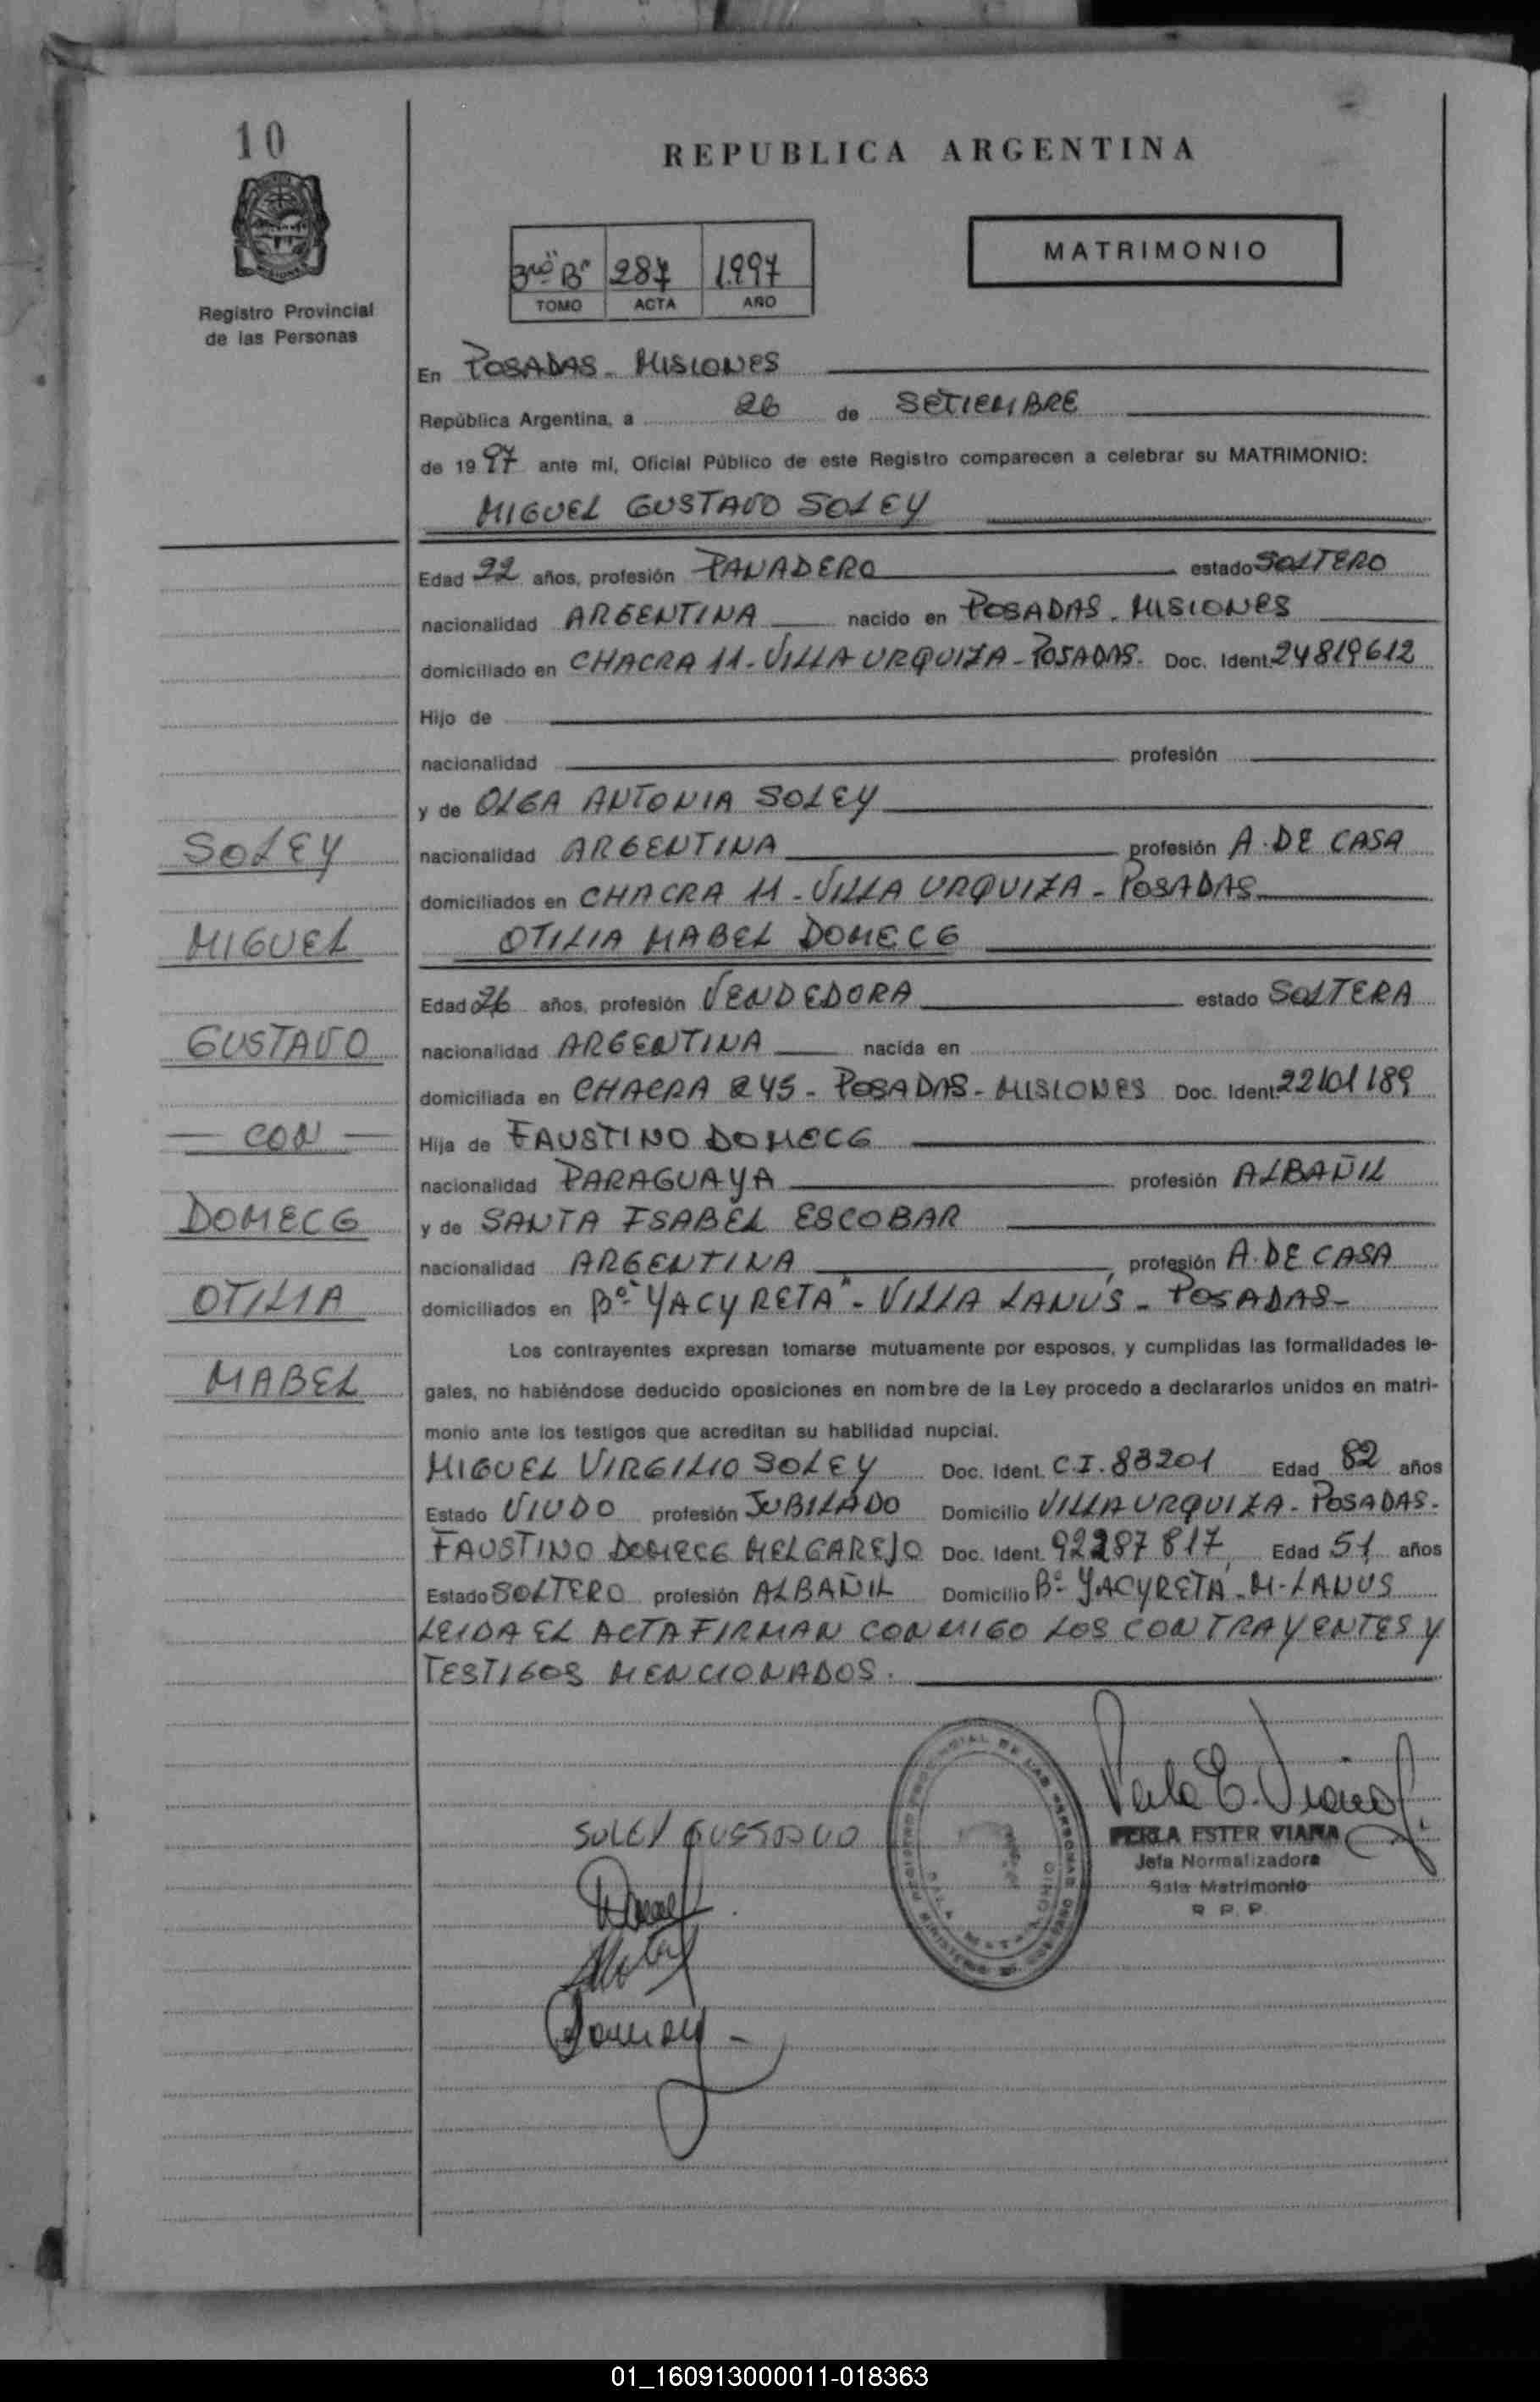 10
REPUBLICA ARGENTINA
MATRIMONIO
3ro Bº 287 1.997
TOMO ACTA AÑO
Registro Provincial
de las Personas
En POSADAS - MISIONES
República Argentina, a 26 de SETIEMBRE
de 19 97 ante mí, Oficial Público de este Registro comparecen a celebrar su MATRIMONIO:
MIGUEL GUSTAVO SOLEY
Edad 22 años, profesión PANADERO estado SOLTERO
nacionalidad ARGENTINA nacido en POSADAS - MISIONES
domiciliado en CHACRA 11 - VILLA URQUIZA - POSADAS. Doc. Ident. 24819612
Hijo de
nacionalidad profesión
y de OLGA ANTONIA SOLEY
SOLEY
nacionalidad ARGENTINA profesión A. DE CASA
domiciliados en CHACRA 11 - VILLA URQUIZA - POSADAS
MIGUEL
OTILIA MABEL DOMECG
Edad 26 años, profesión VENDEDORA estado SOLTERA
GUSTAVO
nacionalidad ARGENTINA nacida en
domiciliada en CHACRA 245 - POSADAS - MISIONES Doc. Ident. 22101189
- CON -
Hija de FAUSTINO DOMECG
nacionalidad PARAGUAYA profesión ALBAÑIL
DOMECG
y de SANTA ISABEL ESCOBAR
nacionalidad ARGENTINA profesión A. DE CASA
OTILIA
domiciliados en Bº "YACYRETA" - VILLA LANÚS - POSADAS -
Los contrayentes expresan tomarse mutuamente por esposos, y cumplidas las formalidades le-
MABEL
gales, no habiéndose deducido oposiciones en nombre de la Ley procedo a declararlos unidos en matri-
monio ante los testigos que acreditan su habilidad nupcial.
MIGUEL VIRGILIO SOLEY Doc. Ident. C.I. 83201 Edad 82 años
Estado VIUDO profesión JUBILADO Domicilio VILLA URQUIZA - POSADAS -
FAUSTINO DOMECG MELGAREJO Doc. Ident. 92287817 Edad 51 años
Estado SOLTERO profesión ALBAÑIL Domicilio Bº YACYRETA - M - LANUS
LEIDA EL ACTA FIRMAN CONMIGO LOS CONTRAYENTES Y
TESTIGOS MENCIONADOS.
Perla E. Viana
SOLEY GUSTAVO
PERLA ESTER VIANA
Jefa Normalizadora
Sala Matrimonio
R. P. P.
01_160913000011-018363